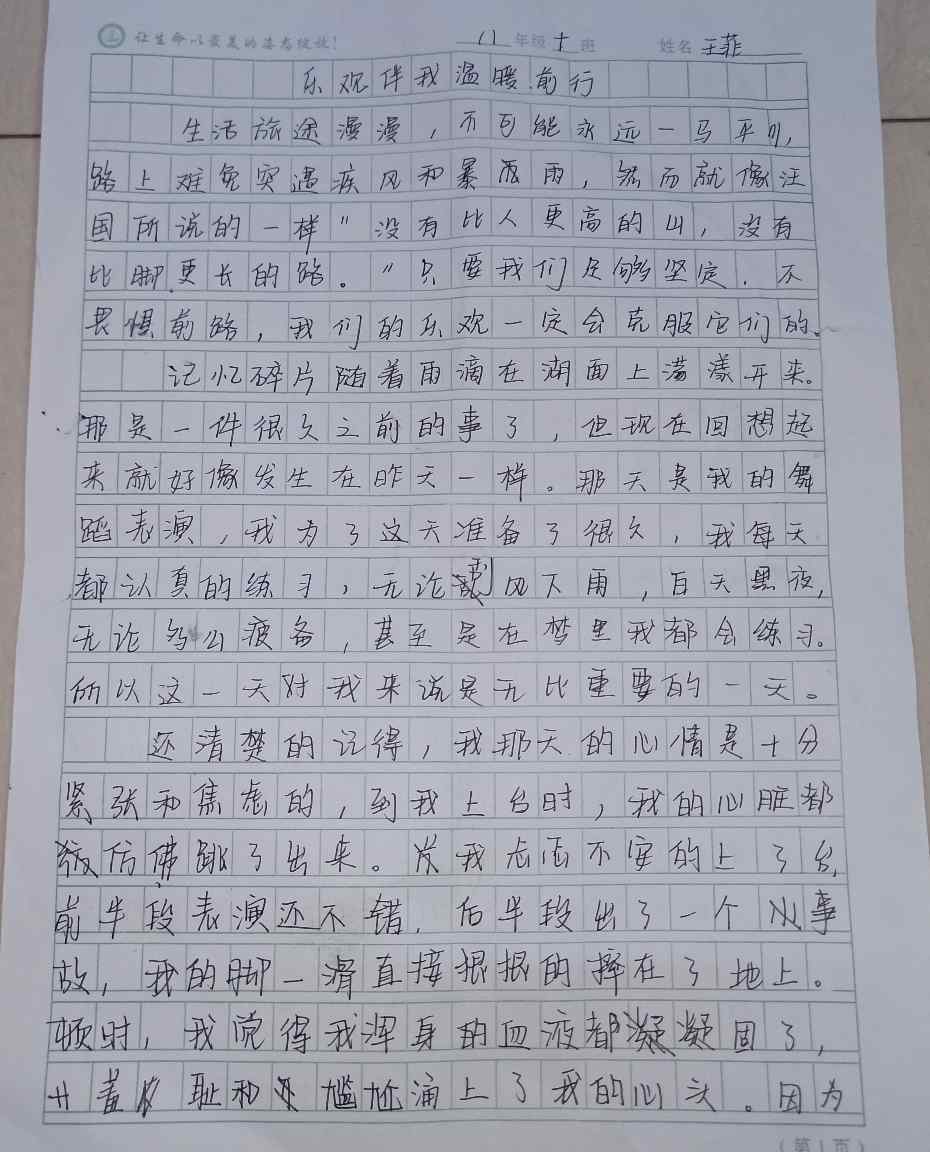 让生命以最美的姿态绽放！ 八年级十班 姓名 王菲
乐观伴我温暖前行
生活旅途漫漫，不可能永远一马平川，
路上难免突遇疾风和暴雨，然而就像汪
国所说的一样"没有比人更高的山，没有
比脚更长的路。"只要我们足够坚定，不
畏惧前路，我们的乐观一定会克服它们的。
记忆碎片随着雨滴在湖面上荡漾开来。
那是一件很久之前的事了，但现在回想起
来就好像发生在昨天一样。那天是我的舞
蹈表演，我为了这天准备了很久，我每天
都认真的练习，无论刮风下雨，白天黑夜，
无论多么疲备，甚至是在梦里我都会练习。
所以这一天对我来说是无比重要的一天。
还清楚的记得，我那天的心情是十分
紧张和焦虑的，到我上台时，我的心脏都
仿佛跳了出来。我忐忑不安的上了台，
前半段表演还不错，后半段出了一个小事
故，我的脚一滑直接狠狠的摔在了地上。
顿时，我觉得我浑身的血液都凝固了，
羞耻和尴尬涌上了我的心头。因为
（第1页）